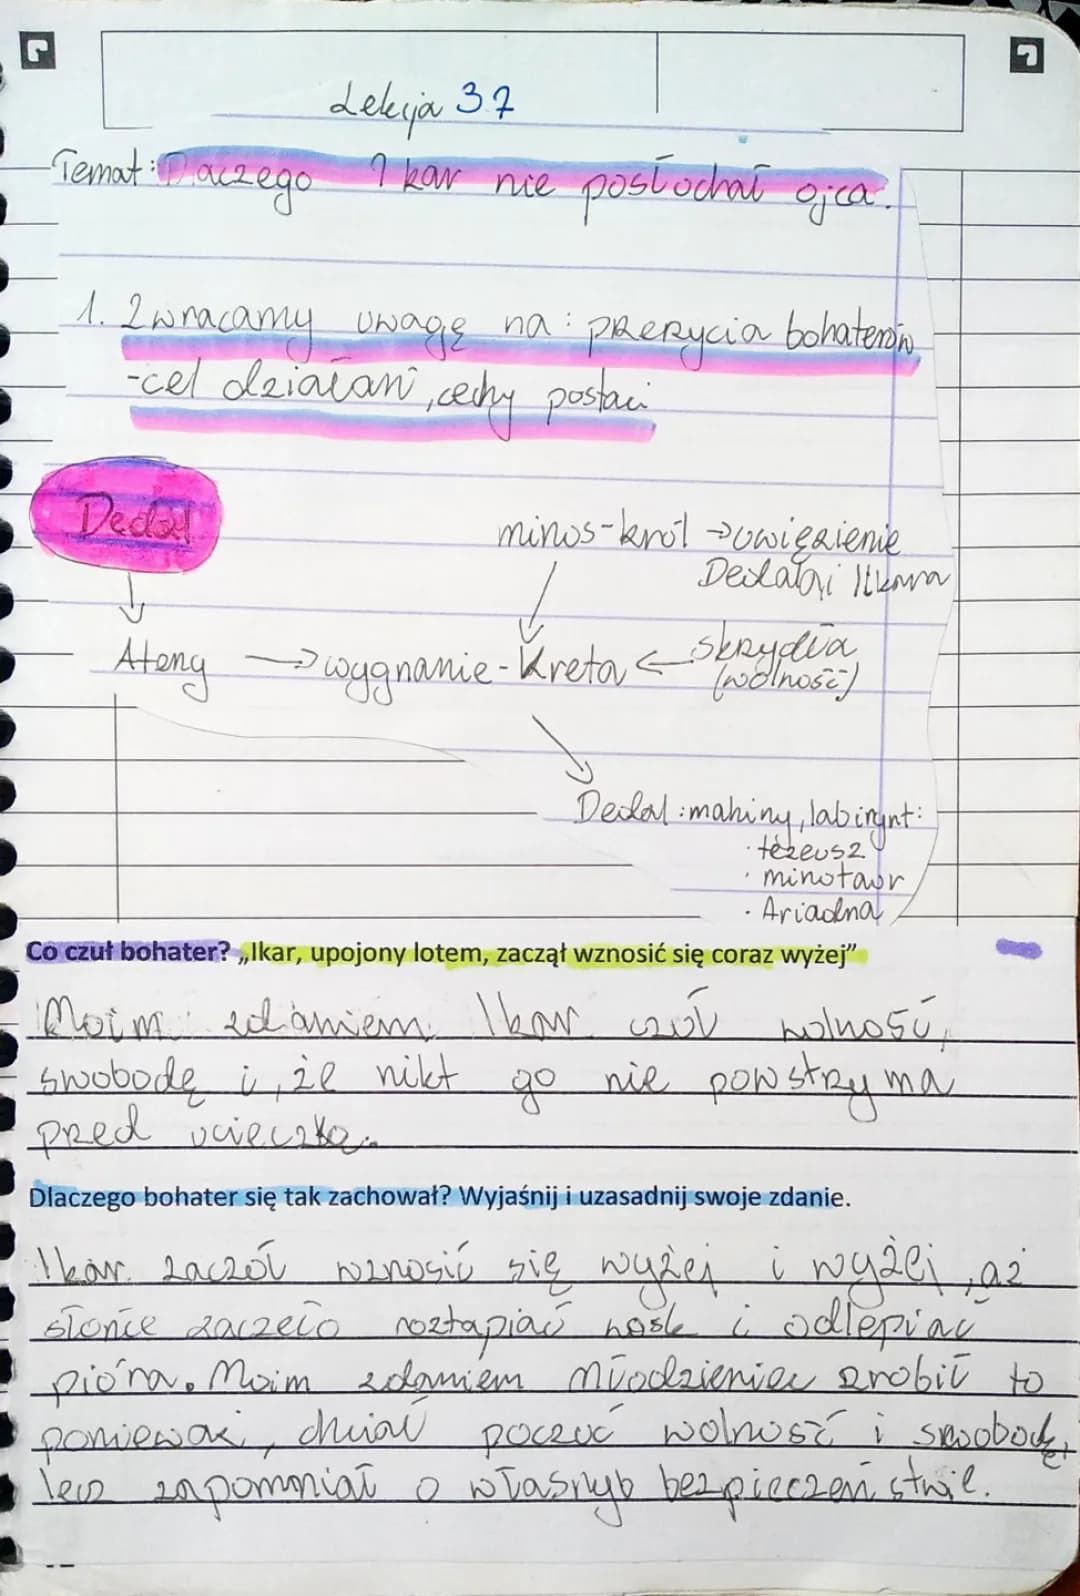 Lekcja 37
Temat: Dlaczego Ikar nie posłochał ojca.
1. Zwracamy uwagę na: przeżycia bohaterów
-cel działań, cechy postaci
Dedal
minos-król → uwięzienie
Dedala i Ikara
Ateny → wygnanie - Kreta ← skrzydła
(wolność)
Dedal: mahiny, labirynt:
· tezeusz
· minotaur
· Ariadna
Co czuł bohater? „Ikar, upojony lotem, zaczął wznosić się coraz wyżej”
Moim zdaniem Ikar czół wolność,
swobodę i, że nikt go nie powstrzyma
przed ucieczką.
Dlaczego bohater się tak zachował? Wyjaśnij i uzasadnij swoje zdanie.
Ikar zaczół wznosić się wyżej i wyżej, aż
słońce zaczeło roztapiać wosk i odlepiać
pióra. Moim zdaniem młodzieniec zrobił to
ponieważ, chciał poczuć wolność i swobodę,
lecz zapomniał o własnyb bezpieczeństwie.